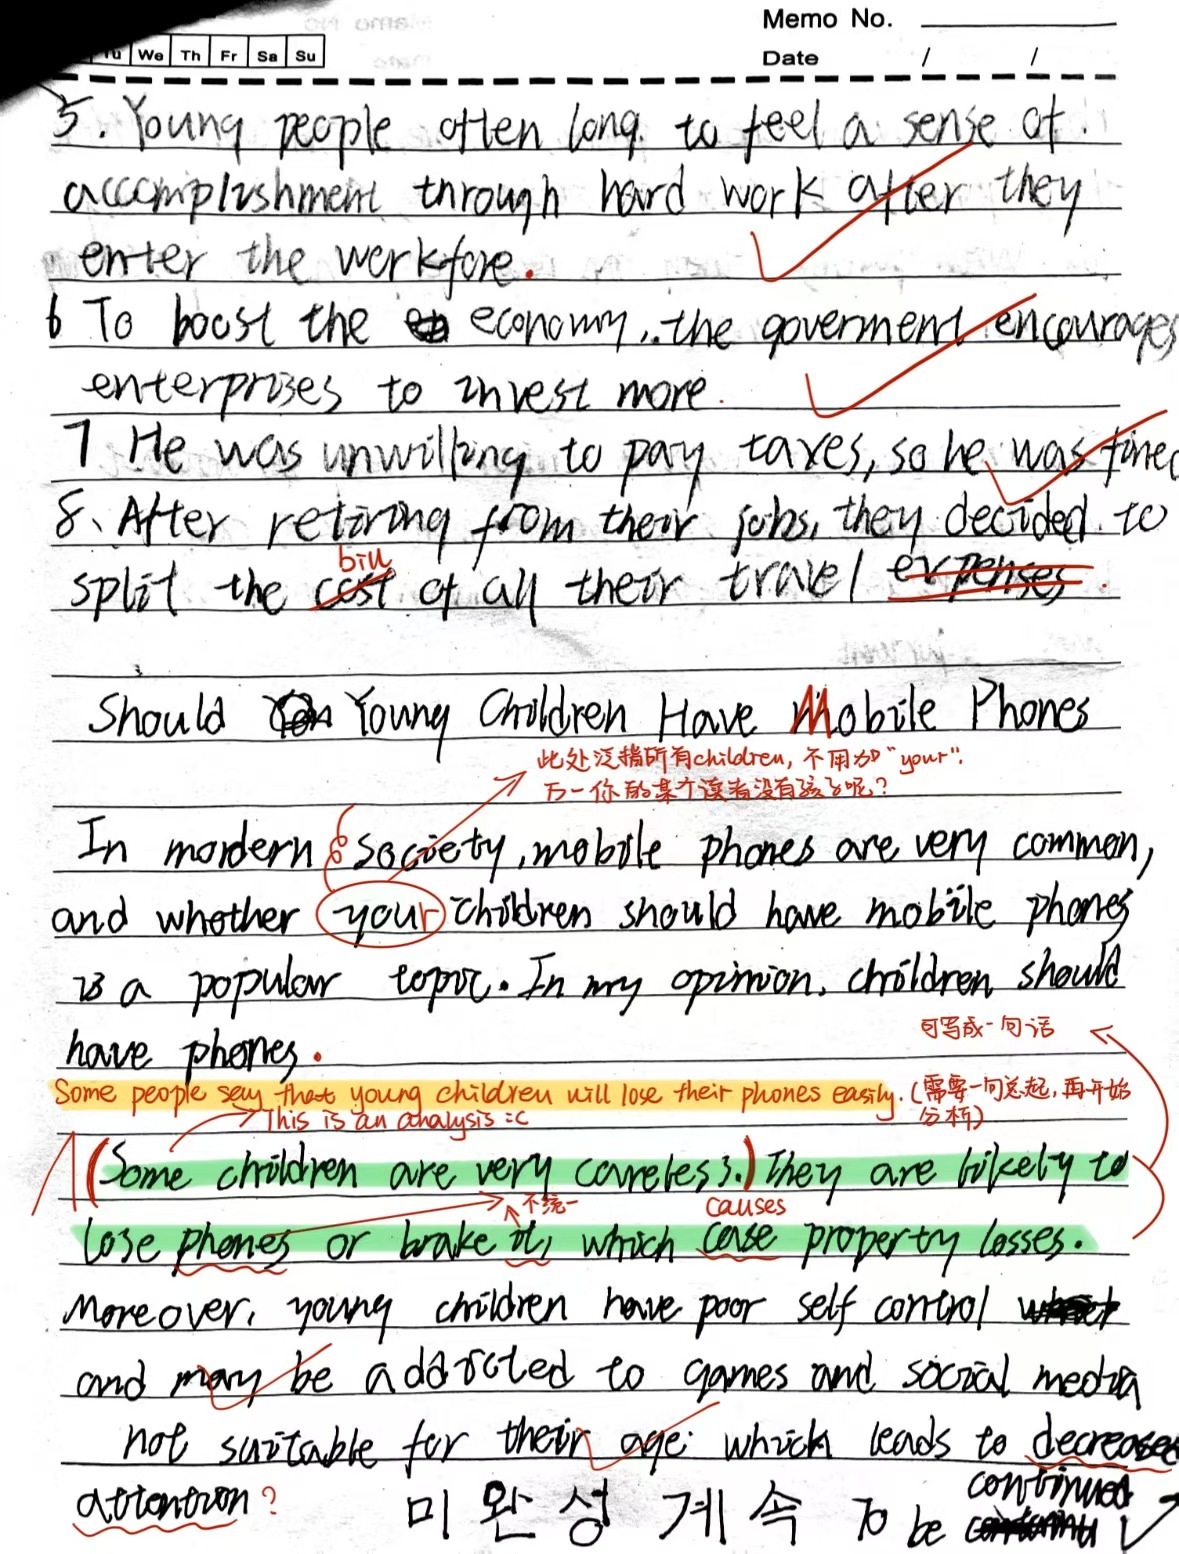 Memo No.
Tu We Th Fr Sa Su
Date / /
5. Young people often long to feel a sense of
acccomplishment through hard work after they
enter the workfore.
6 To boost the economy, the goverment encourages
enterprises to invest more.
7 He was unwilling to pay taxes, so he was fined
8、After retiring from their jobs, they decided to
bill
split the cost of all their travel expenses.
Should Young Children Have Mobile Phones
此处泛指所有children, 不用加"your".
万一你的某个读者没有孩子呢？
In mordern society, mobile phones are very common,
and whether your children should have mobile phones
is a popular topic. In my opinion, children should
可写成一句话
have phones.
Some people say that young children will lose their phones easily. (需要一句总起，再开始
分析)
This is an analysis :c
(Some children are very careless.) They are likely to
不统一 causes
lose phones or brake it, which case property losses.
Moreover, young children have poor self control
and may be addicted to games and social media
not suitable for their age. which leads to decreases
attention?
미완성 계속 To be continued